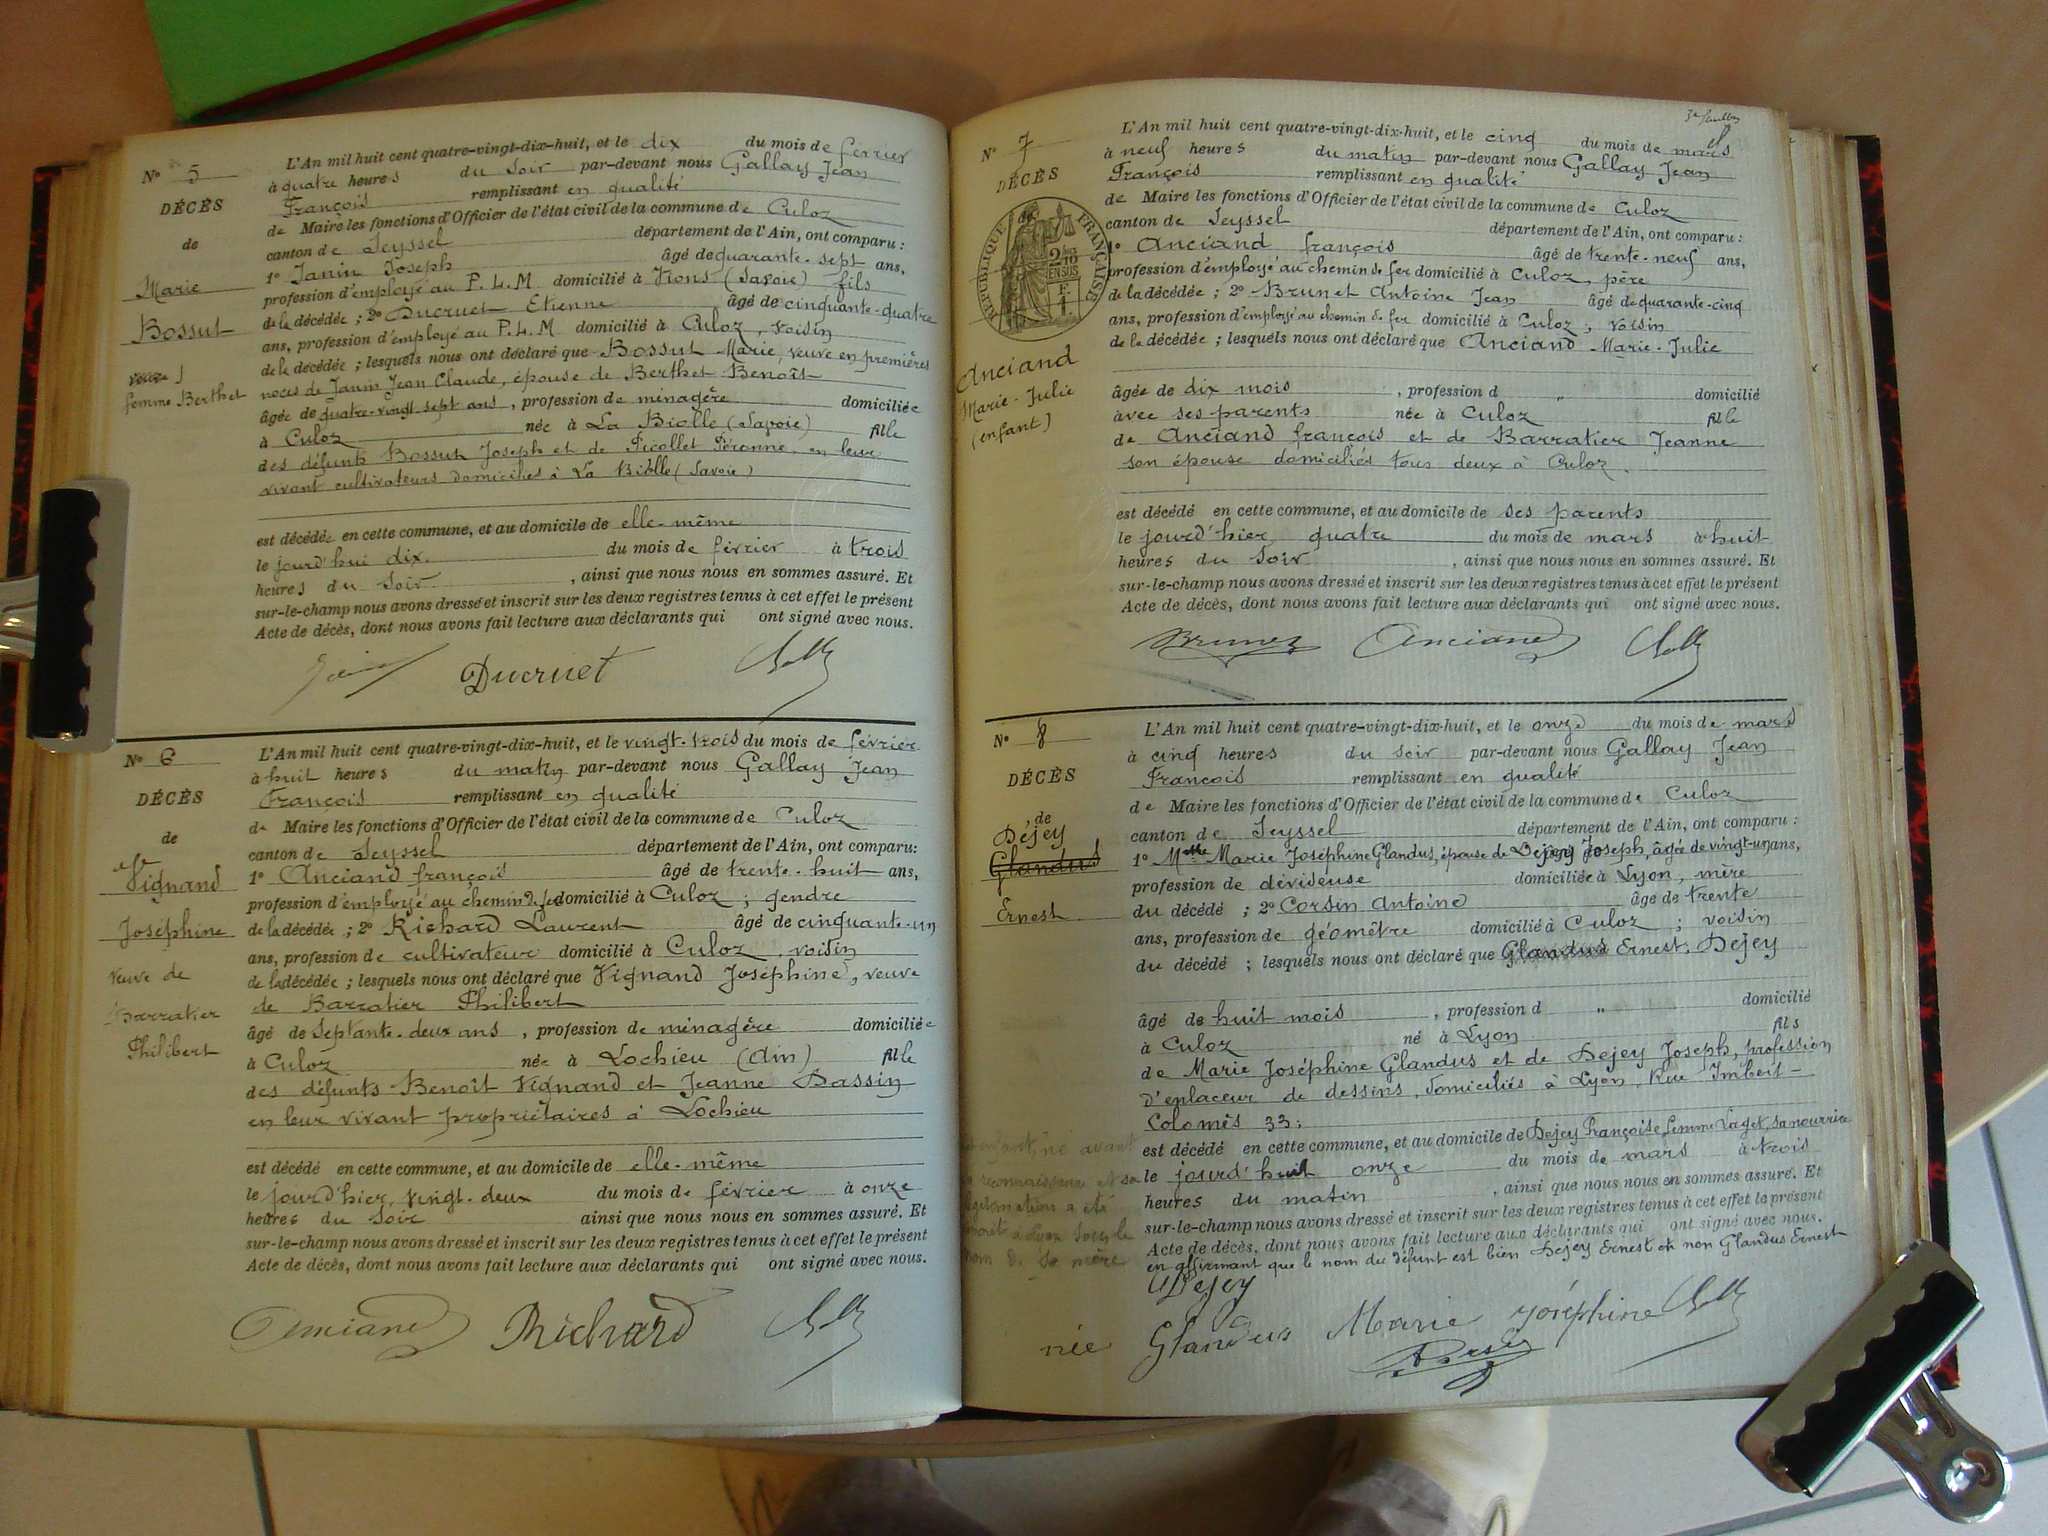 N° 5
DÉCÈS
de
Marie
Bossut
veuve
femme Berthet
L'An mil huit cent quatre-vingt-dix-huit, et le dix du mois de février
à quatre heures du soir par-devant nous Gallay Jean
François remplissant en qualité
de Maire les fonctions d'Officier de l'état civil de la commune de Culoz
canton de Seyssel département de l'Ain, ont comparu :
1° Janin Joseph âgé de quarante-sept ans,
profession d'employé au P.L.M domicilié à Vions (Savoie) fils
de la décédée ; 2° Ducruet Etienne âgé de cinquante-quatre
ans, profession d'employé au P.L.M domicilié à Culoz, voisin
de la décédée ; lesquels nous ont déclaré que Bossut Marie, veuve en premières
noces de Janin Jean Claude, épouse de Berthet Benoît
âgée de quatre-vingt sept ans, profession de ménagère domiciliée
à Culoz née à La Biolle (Savoie) fille
des défunts Bossut Joseph et de Picollet Péronne en leur
vivant cultivateurs domiciliés à La Biolle (Savoie)
est décédée en cette commune, et au domicile de elle-même
le jourd'hui dix du mois de février à trois
heures du soir, ainsi que nous nous en sommes assuré. Et
sur-le-champ nous avons dressé et inscrit sur les deux registres tenus à cet effet le présent
Acte de décès, dont nous avons fait lecture aux déclarants qui ont signé avec nous.
Ducruet
N° 6
DÉCÈS
de
Vignand
Joséphine
veuve de
Barratier
Philibert
L'An mil huit cent quatre-vingt-dix-huit, et le vingt-trois du mois de février
à huit heures du matin par-devant nous Gallay Jean
François remplissant en qualité
de Maire les fonctions d'Officier de l'état civil de la commune de Culoz
canton de Seyssel département de l'Ain, ont comparu:
1° Anciand françois âgé de trente-huit ans,
profession d'employé au chemin de fer domicilié à Culoz ; gendre
de la décédée ; 2° Richard Laurent âgé de cinquante-un
ans, profession de cultivateur domicilié à Culoz, voisin
de la décédée ; lesquels nous ont déclaré que Vignand Joséphine, veuve
de Barratier Philibert
âgé de septante-deux ans, profession de ménagère domiciliée
à Culoz née à Lochieu (Ain) fille
des défunts Benoît Vignand et Jeanne Dassin
en leur vivant propriétaires à Lochieu
est décédé en cette commune, et au domicile de elle-même
le jourd'hier, vingt-deux du mois de février à onze
heures du soir ainsi que nous nous en sommes assuré. Et
sur-le-champ nous avons dressé et inscrit sur les deux registres tenus à cet effet le présent
Acte de décès, dont nous avons fait lecture aux déclarants qui ont signé avec nous.
Anciand Richard
N° 7
DÉCÈS
de
RÉPUBLIQUE FRANÇAISE
Anciand
Marie-Julie
(enfant)
L'An mil huit cent quatre-vingt-dix-huit, et le cinq du mois de mars
à neuf heures du matin par-devant nous Gallay Jean
François remplissant en qualité
de Maire les fonctions d'Officier de l'état civil de la commune de Culoz
canton de Seyssel département de l'Ain, ont comparu :
1° Anciand françois âgé de trente-neuf ans,
profession d'employé au chemin de fer domicilié à Culoz, père
de la décédée ; 2° Brunet Antoine Jean âgé de quarante-cinq
ans, profession d'employé au chemin de fer domicilié à Culoz ; voisin
de la décédée ; lesquels nous ont déclaré que Anciand Marie-Julie
âgée de dix mois, profession d " domicilié
avec ses parents née à Culoz fille
de Anciand françois et de Barratier Jeanne
son épouse domiciliés tous deux à Culoz.
est décédé en cette commune, et au domicile de ses parents
le jourd'hier quatre du mois de mars à huit
heures du soir, ainsi que nous nous en sommes assuré. Et
sur-le-champ nous avons dressé et inscrit sur les deux registres tenus à cet effet le présent
Acte de décès, dont nous avons fait lecture aux déclarants qui ont signé avec nous.
Brunet Anciand
N° 8
DÉCÈS
de
Déjey
Glandus
Ernest
L'An mil huit cent quatre-vingt-dix-huit, et le onze du mois de mars
à cinq heures du soir par-devant nous Gallay Jean
François remplissant en qualité
de Maire les fonctions d'Officier de l'état civil de la commune de Culoz
canton de Seyssel département de l'Ain, ont comparu :
1° Marie Joséphine Glandus, épouse de Dejey Joseph, âgée de vingt-un ans,
profession de dévideuse domiciliée à Lyon, mère
du décédé ; 2° Corsin Antoine âgé de trente
ans, profession de géomètre domicilié à Culoz ; voisin
du décédé ; lesquels nous ont déclaré que Glandus Ernest, Dejey
âgé de huit mois, profession d " domicilié
à Culoz né à Lyon fils
de Marie Joséphine Glandus et de Dejey Joseph, profession
d'enlaceur de dessins, domiciliés à Lyon, Rue Imbert-
Colomès 33;
est décédé en cette commune, et au domicile de Dejey Françoise femme Laget, sa nourrice
le jourd'hui onze du mois de mars à trois
heures du matin, ainsi que nous nous en sommes assuré. Et
sur-le-champ nous avons dressé et inscrit sur les deux registres tenus à cet effet le présent
Acte de décès, dont nous avons fait lecture aux déclarants qui ont signé avec nous.
en affirmant que le nom du défunt est bien Dejey Ernest et non Glandus Ernest
Dejey
née Glandus Marie Joséphine